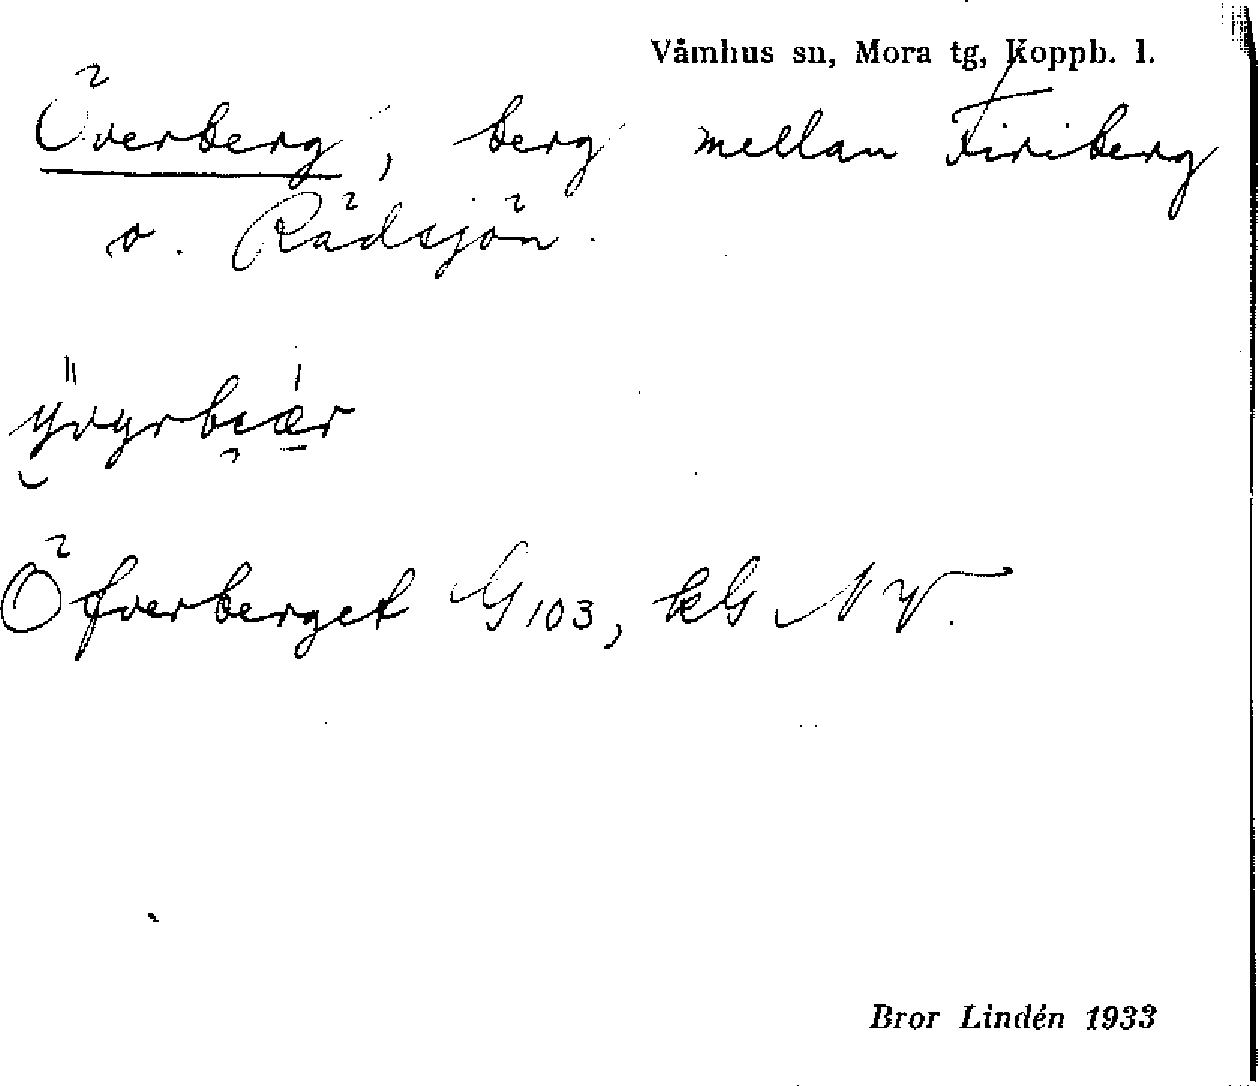 Våmhus sn, Mora tg, Koppb. l.
Överberg, berg mellan Firiberg
o. Rädsjön.
ÿvyrbiær
Öfverberget G 103, kG NV.
Bror Lindén 1933